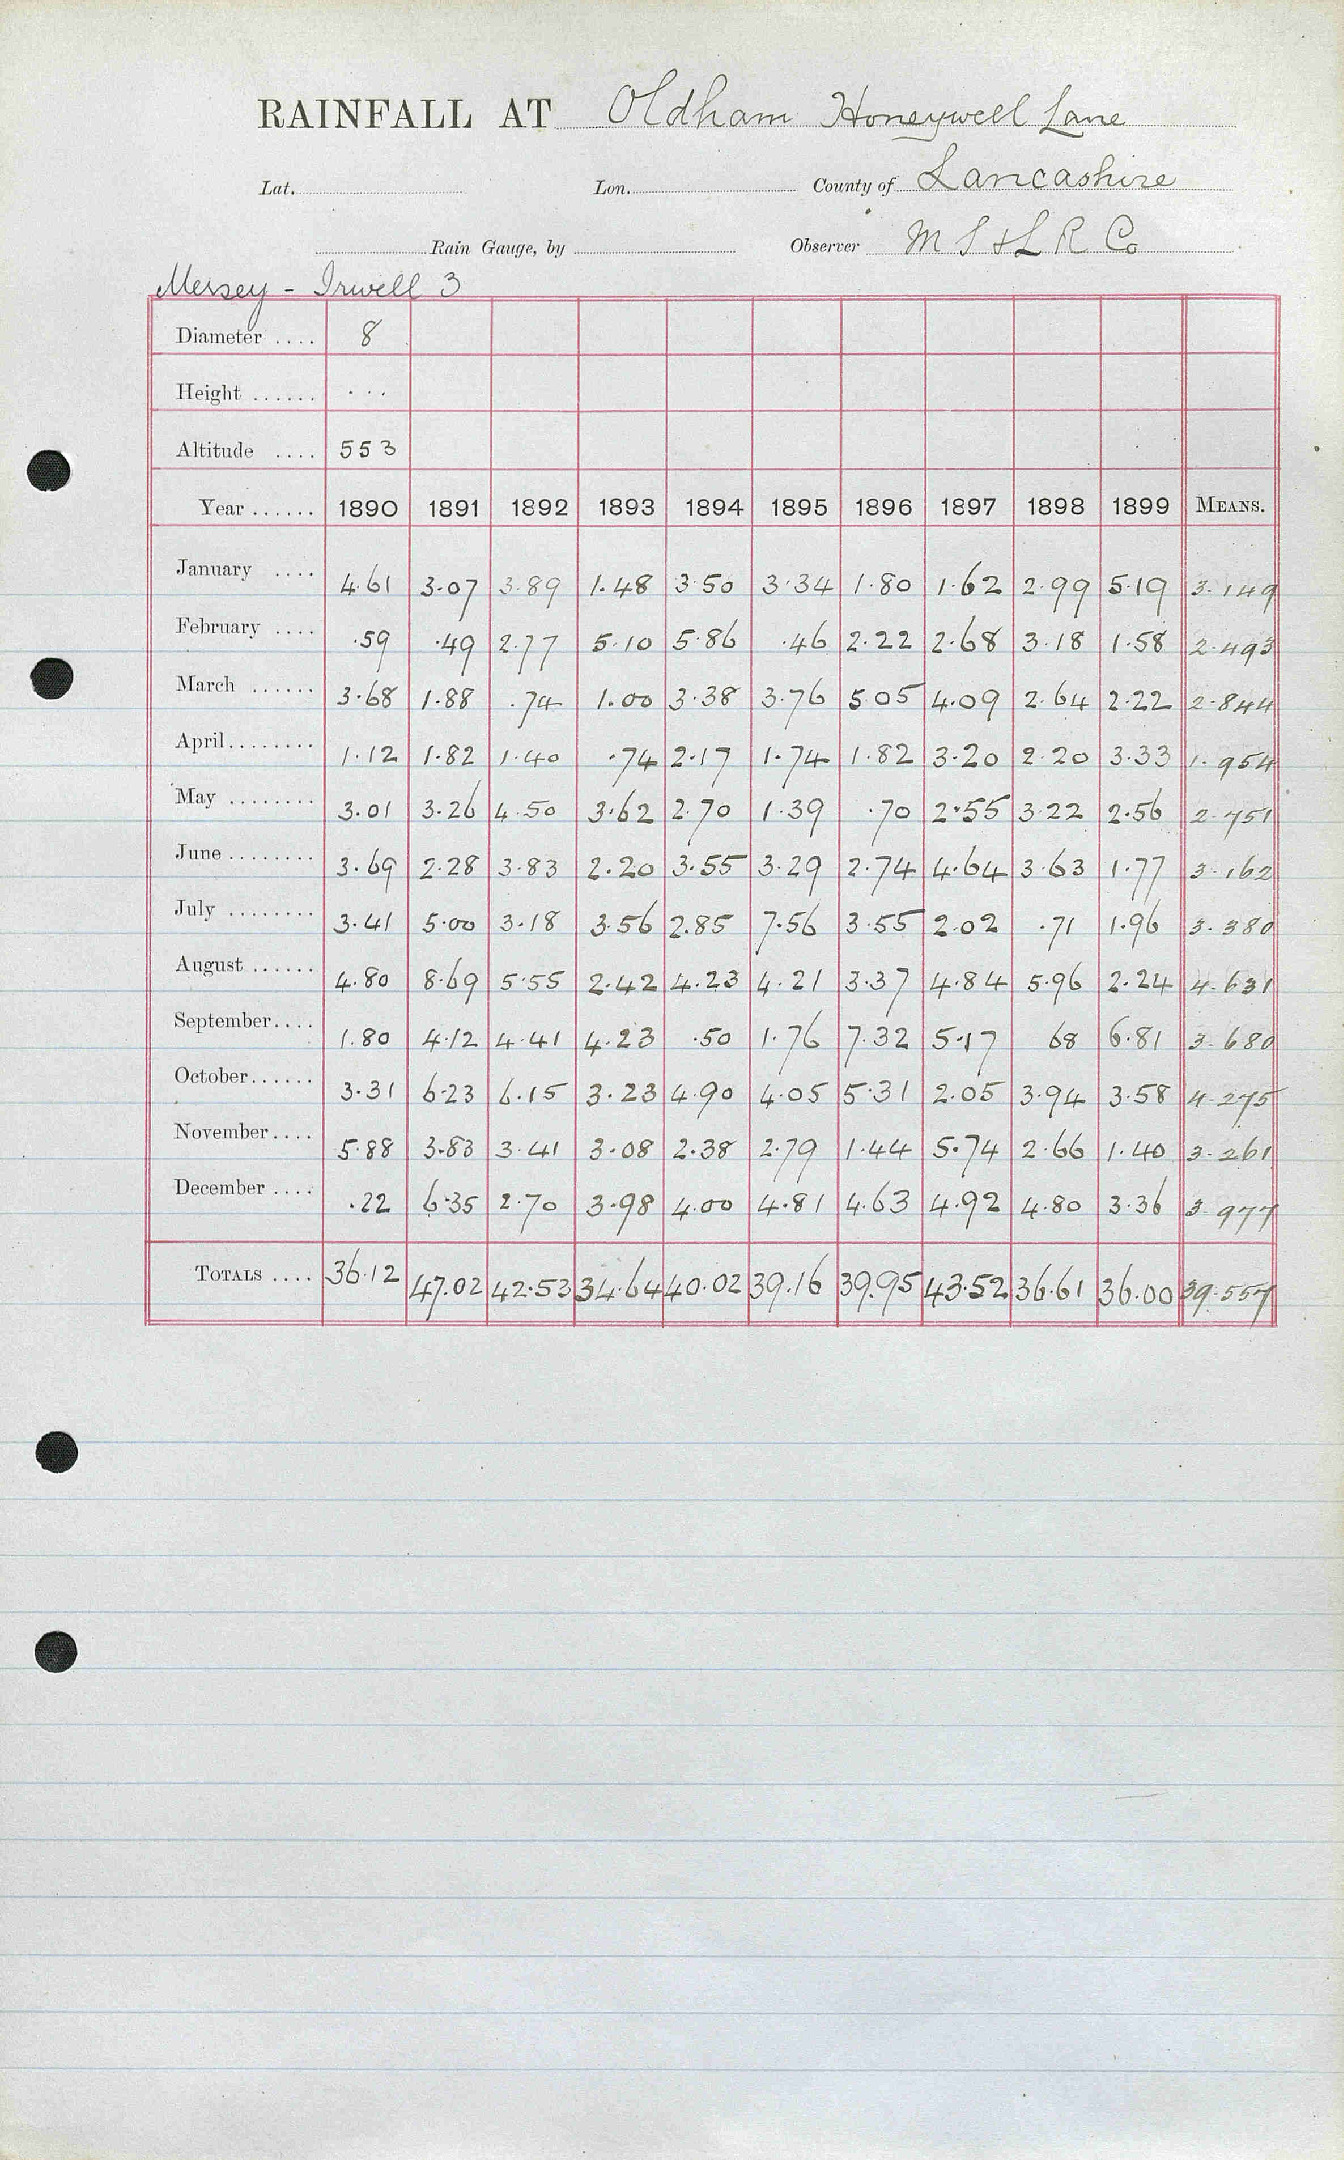 RAINFALL AT Oldham Honeywell Lane
Lat. Lon. County of Lancashire
Rain Gauge, by Observer M S & L R Co
Mersey - Irwell 3
Diameter .... 8
Height ...... ...
Altitude .... 553
Year ...... 1890 1891 1892 1893 1894 1895 1896 1897 1898 1899 MEANS.
January .... 4.61 3.07 3.89 1.48 3.50 3.34 1.80 1.62 2.99 5.19 3.149
February .... .59 .49 2.77 5.10 5.86 .46 2.22 2.68 3.18 1.58 2.493
March ...... 3.68 1.88 .74 1.00 3.38 3.76 5.05 4.09 2.64 2.22 2.844
April........ 1.12 1.82 1.40 .74 2.17 1.74 1.82 3.20 2.20 3.33 1.954
May ........ 3.01 3.26 4.50 3.62 2.70 1.39 .70 2.55 3.22 2.56 2.751
June ........ 3.69 2.28 3.83 2.20 3.55 3.29 2.74 4.64 3.63 1.77 3.162
July ........ 3.41 5.00 3.18 3.56 2.85 7.56 3.55 2.02 .71 1.96 3.380
August ...... 4.80 8.69 5.55 2.42 4.23 4.21 3.37 4.84 5.96 2.24 4.631
September.... 1.80 4.12 4.41 4.23 .50 1.76 7.32 5.17 68 6.81 3.680
October...... 3.31 6.23 6.15 3.23 4.90 4.05 5.31 2.05 3.94 3.58 4.275
November.... 5.88 3.83 3.41 3.08 2.38 2.79 1.44 5.74 2.66 1.40 3.261
December .... .22 6.35 2.70 3.98 4.00 4.81 4.63 4.92 4.80 3.36 3.977
TOTALS .... 36.12 47.02 42.53 34.64 40.02 39.16 39.95 43.52 36.61 36.00 39.557